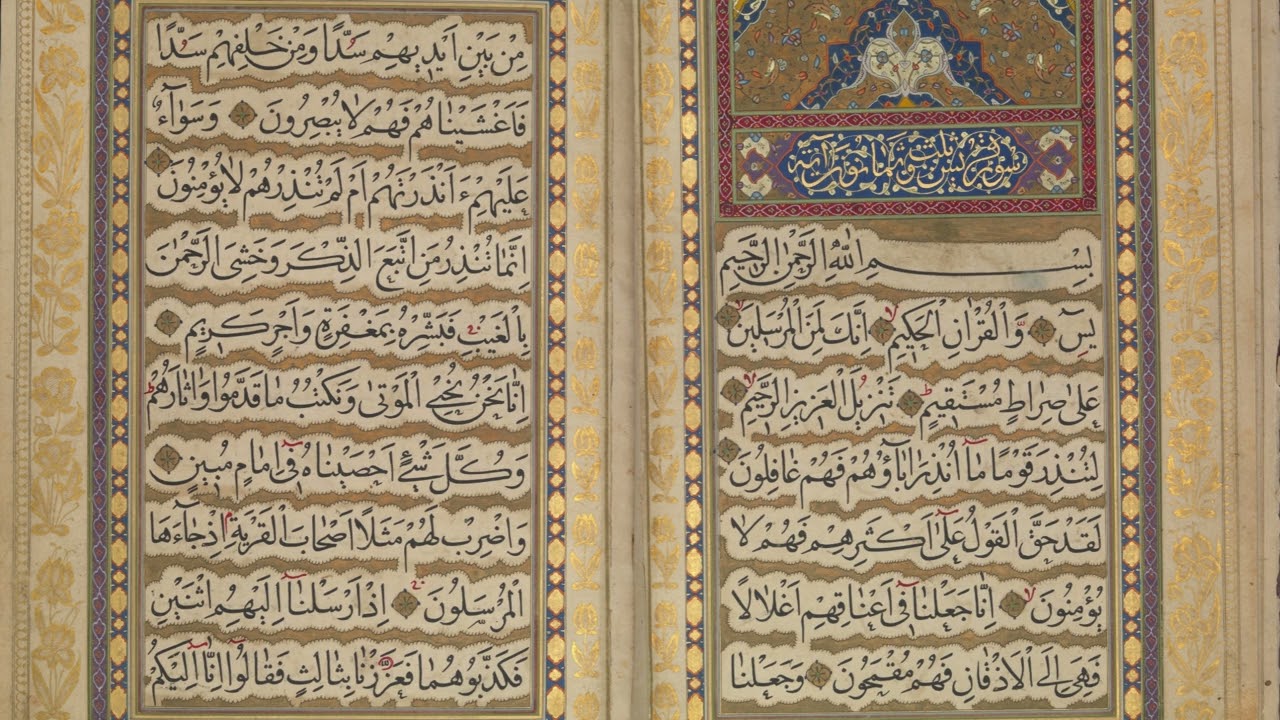 سورة يس ثلث وثمانون آية
بِسْمِ اللهِ الرَّحْمٰنِ الرَّحِيمِ
يسٓ وَالْقُرْاٰنِ الْحَكِيمِ اِنَّكَ لَمِنَ الْمُرْسَلِينَ
عَلٰى صِرَاطٍ مُسْتَقِيمٍ تَنْزِيلَ الْعَزِيزِ الرَّحِيمِ
لِتُنْذِرَ قَوْمًا مَا اُنْذِرَ اٰبَاؤُهُمْ فَهُمْ غَافِلُونَ
لَقَدْ حَقَّ الْقَوْلُ عَلٰى اَكْثَرِهِمْ فَهُمْ لَا
يُؤْمِنُونَ اِنَّا جَعَلْنَا فِى اَعْنَاقِهِمْ اَغْلَالًا
فَهِىَ اِلَى الْاَذْقَانِ فَهُمْ مُقْمَحُونَ وَجَعَلْنَا
مِنْ بَيْنِ اَيْدِيهِمْ سَدًّا وَمِنْ خَلْفِهِمْ سَدًّا
فَاَغْشَيْنَاهُمْ فَهُمْ لَا يُبْصِرُونَ وَسَوَآءٌ
عَلَيْهِمْ ءَاَنْذَرْتَهُمْ اَمْ لَمْ تُنْذِرْهُمْ لَا يُؤْمِنُونَ
اِنَّمَا تُنْذِرُ مَنِ اتَّبَعَ الذِّكْرَ وَخَشِىَ الرَّحْمٰنَ
بِالْغَيْبِ فَبَشِّرْهُ بِمَغْفِرَةٍ وَاَجْرٍ كَرِيمٍ
اِنَّا نَحْنُ نُحْيِى الْمَوْتٰى وَنَكْتُبُ مَا قَدَّمُوا وَاٰثَارَهُمْ
وَكُلَّ شَىْءٍ اَحْصَيْنَاهُ فِى اِمَامٍ مُبِينٍ
وَاضْرِبْ لَهُمْ مَثَلًا اَصْحَابَ الْقَرْيَةِ اِذْ جَآءَهَا
الْمُرْسَلُونَ اِذْ اَرْسَلْنَا اِلَيْهِمُ اثْنَيْنِ
فَكَذَّبُوهُمَا فَعَزَّزْنَا بِثَالِثٍ فَقَالُوا اِنَّا اِلَيْكُمْ